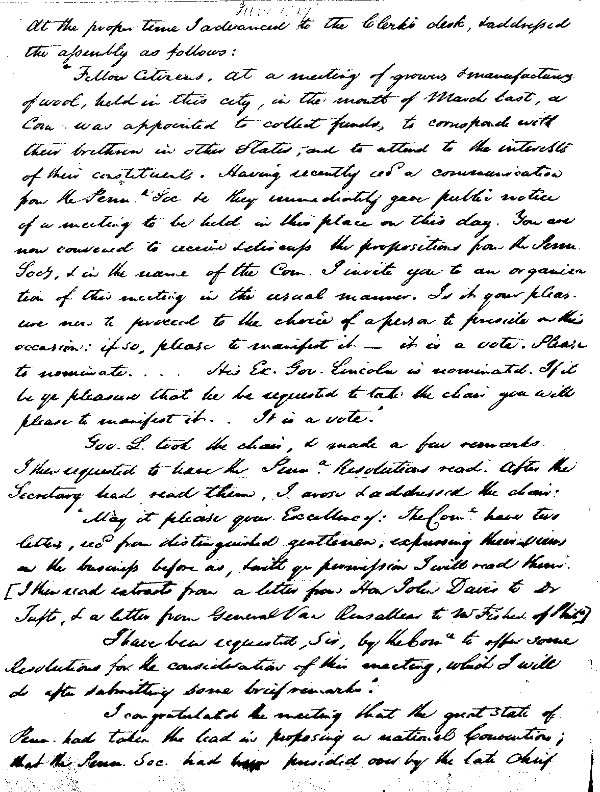 At the proper time I advanced to the Clerk's desk, & addressed
the assembly as follows:
"Fellow Citizens. At a meeting of growers & manufacturers
of wool, held in this city, in the month of March last, a
Com. was appointed to collect funds, to correspond with
their brethren in other States, and to attend to the interests
of their constituents. Having recently recd a communication
from the Penna Soc they immediately gave public notice
of a meeting to be held in this place on this day. You are
now convened to receive & discuss the propositions from the Penn.
Socy, & in the name of the Com. I invite you to an organiza
tion of this meeting in the usual manner. Is it your pleas-
ure now to proceed to the choice of a person to preside on this
occasion: if so, please to manifest it — it is a vote. Please
to nominate. . . . His Ex. Gov. Lincoln is nominated. If it
be yr pleasure that he be requested to take the chair you will
please to manifest it. . . It is a vote."
Gov. L. took the chair, & made a few remarks.
I then requested to have the Penna Resolutions read. After the
Secretary had read them, I arose & addressed the chair:
"May it please your Excellency: The Comee have two
letters, recd from distinguished gentlemen, expressing their views
on the business before us, & with yr permission I will read them.
[I then read extracts from a letter from Hon John Davis to Dr
Tufts, & a letter from General Van Rensallear to Mr Fisher of Phila]
I have been requested, Sir, by the Comee to offer some
Resolutions for the consideration of this meeting, which I will
do after submitting some brief remarks."
I congratulated the meeting that the great State of
Penn. had taken the lead in proposing a national Convention;
that the Penn. Soc. had been presided over by the late Chief